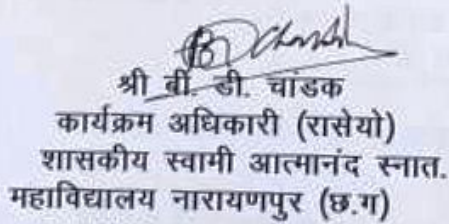 श्री बी. डी. चांडक
कार्यक्रम अधिकारी (रासेयो)
शासकीय स्वामी आत्मानंद स्नात.
महाविद्यालय नारायणपुर (छ.ग)